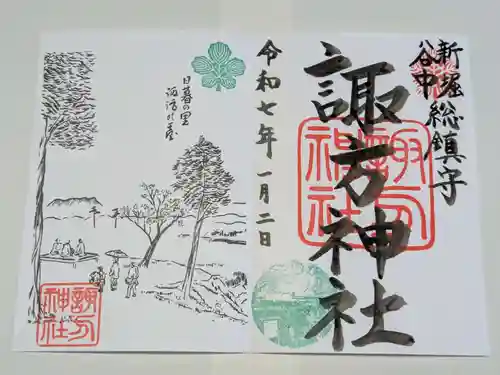 新堀
谷中
総鎮守
諏方神社
諏方
神社
令和七年 一月二日
日暮の里
諏訪の臺
諏方
神社